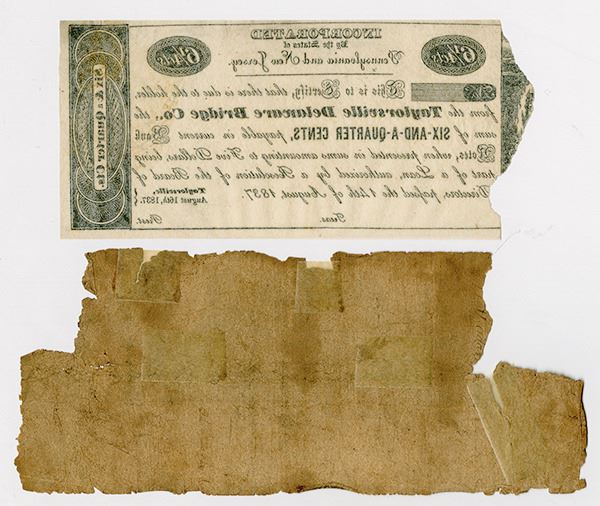 INCORPORATED
By the States of
Pennsylvania and New Jersey.
This is to Certify, that there is due to the holder,
from the Taylorsville Delaware Bridge Co., the
sum of SIX-AND-A-QUARTER CENTS, payable in current Bank
Notes, when presented in sums amounting to Five Dollars, being
part of a Loan, authorized by a Resolution of the Board of
Directors, passed the 14th of August, 1837.
Taylorsville,
August 16th, 1837.
Treas. Prest.
Six & a Quarter Cts.